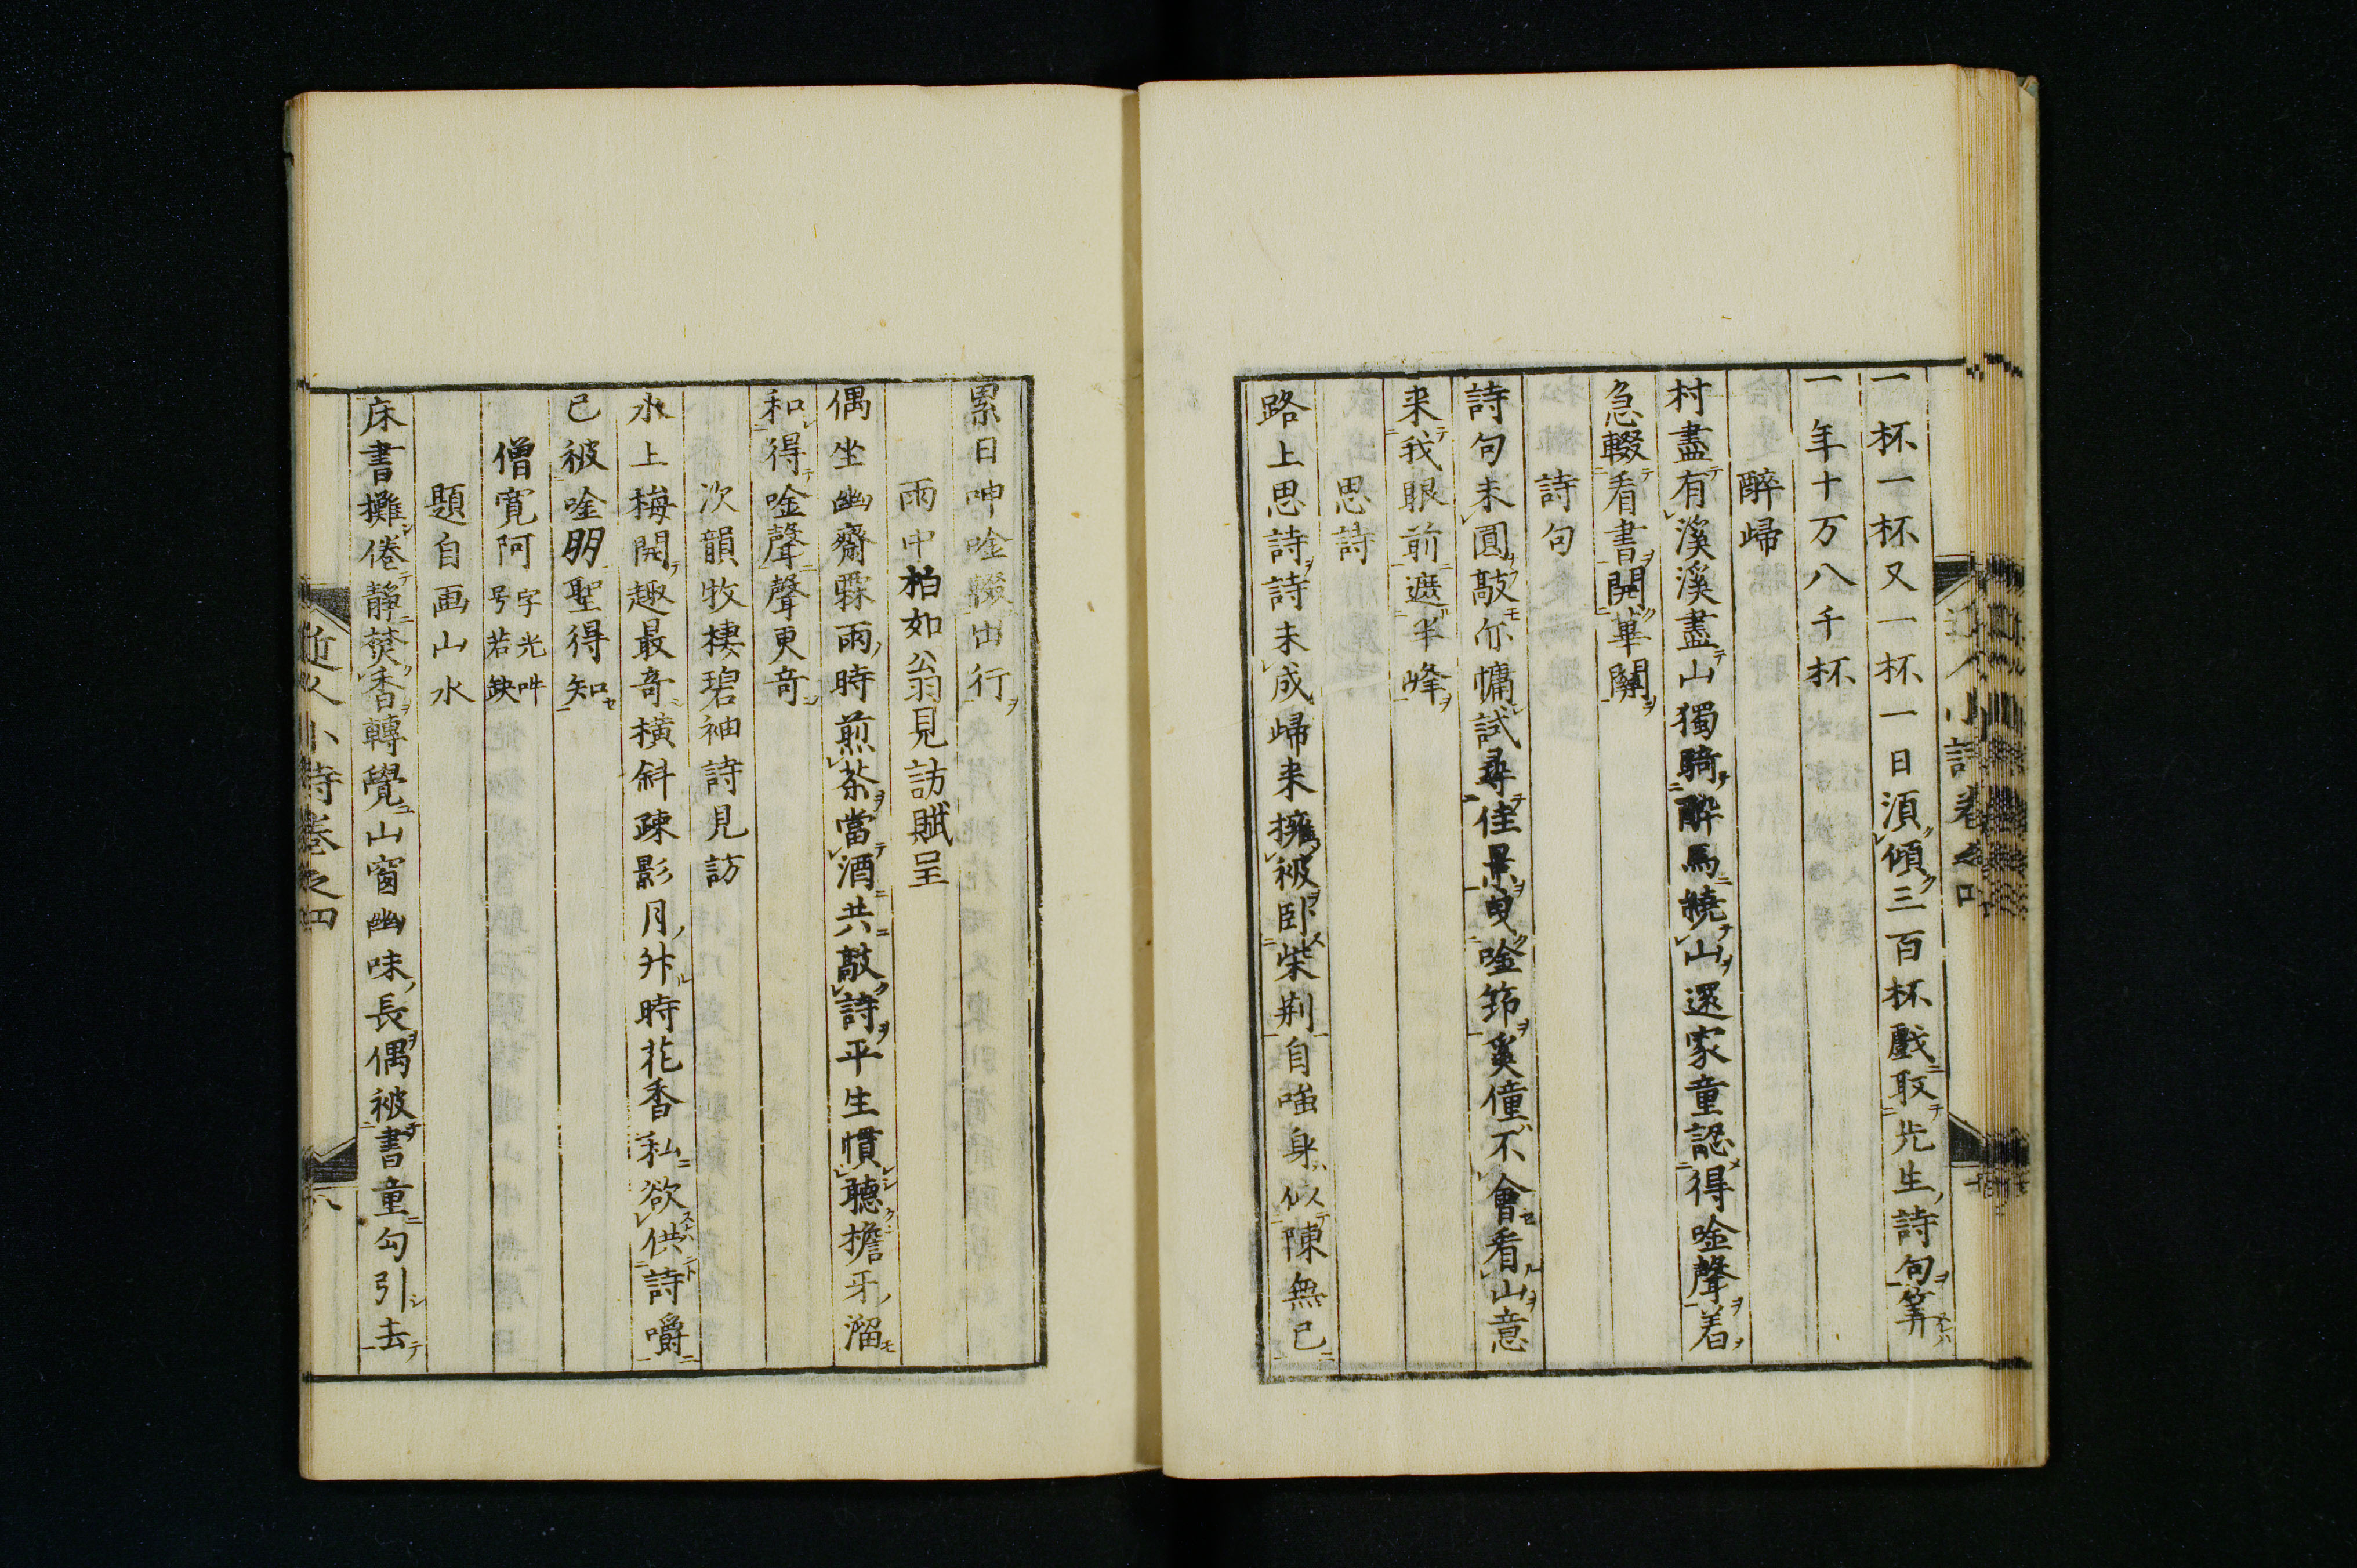 一杯一杯又一杯一日湏傾三百杯戲取先生詩句筭
一年十万八千杯
醉歸
村盡有溪溪盡山獨騎酔馬繞山還家童認得唫聲着
急輟看書開華關
詩句
詩句未圓敲亦慵試尋佳景曳唫筇奚僮不會看山意
来我眼前遮半峰
思詩
路上思詩詩未成歸来擁被卧柴荆自嗤身似陳無己
累日呻唫輟出行
雨中柏如翁見訪賦呈
偶坐幽齋霖雨時煎茶當酒共敲詩平生慣聽擔牙溜
和得唫聲聲更奇
次韻牧棲碧袖詩見訪
水上梅開趣最奇横斜疎影月升時花香私欲供詩嚼
已被唫朋聖得知
僧寛阿 字光吽
号若缺
題自画山水
床書攤倦静焚香轉覺山窗幽味長偶被書童勾引去
近人小詩卷之四
八